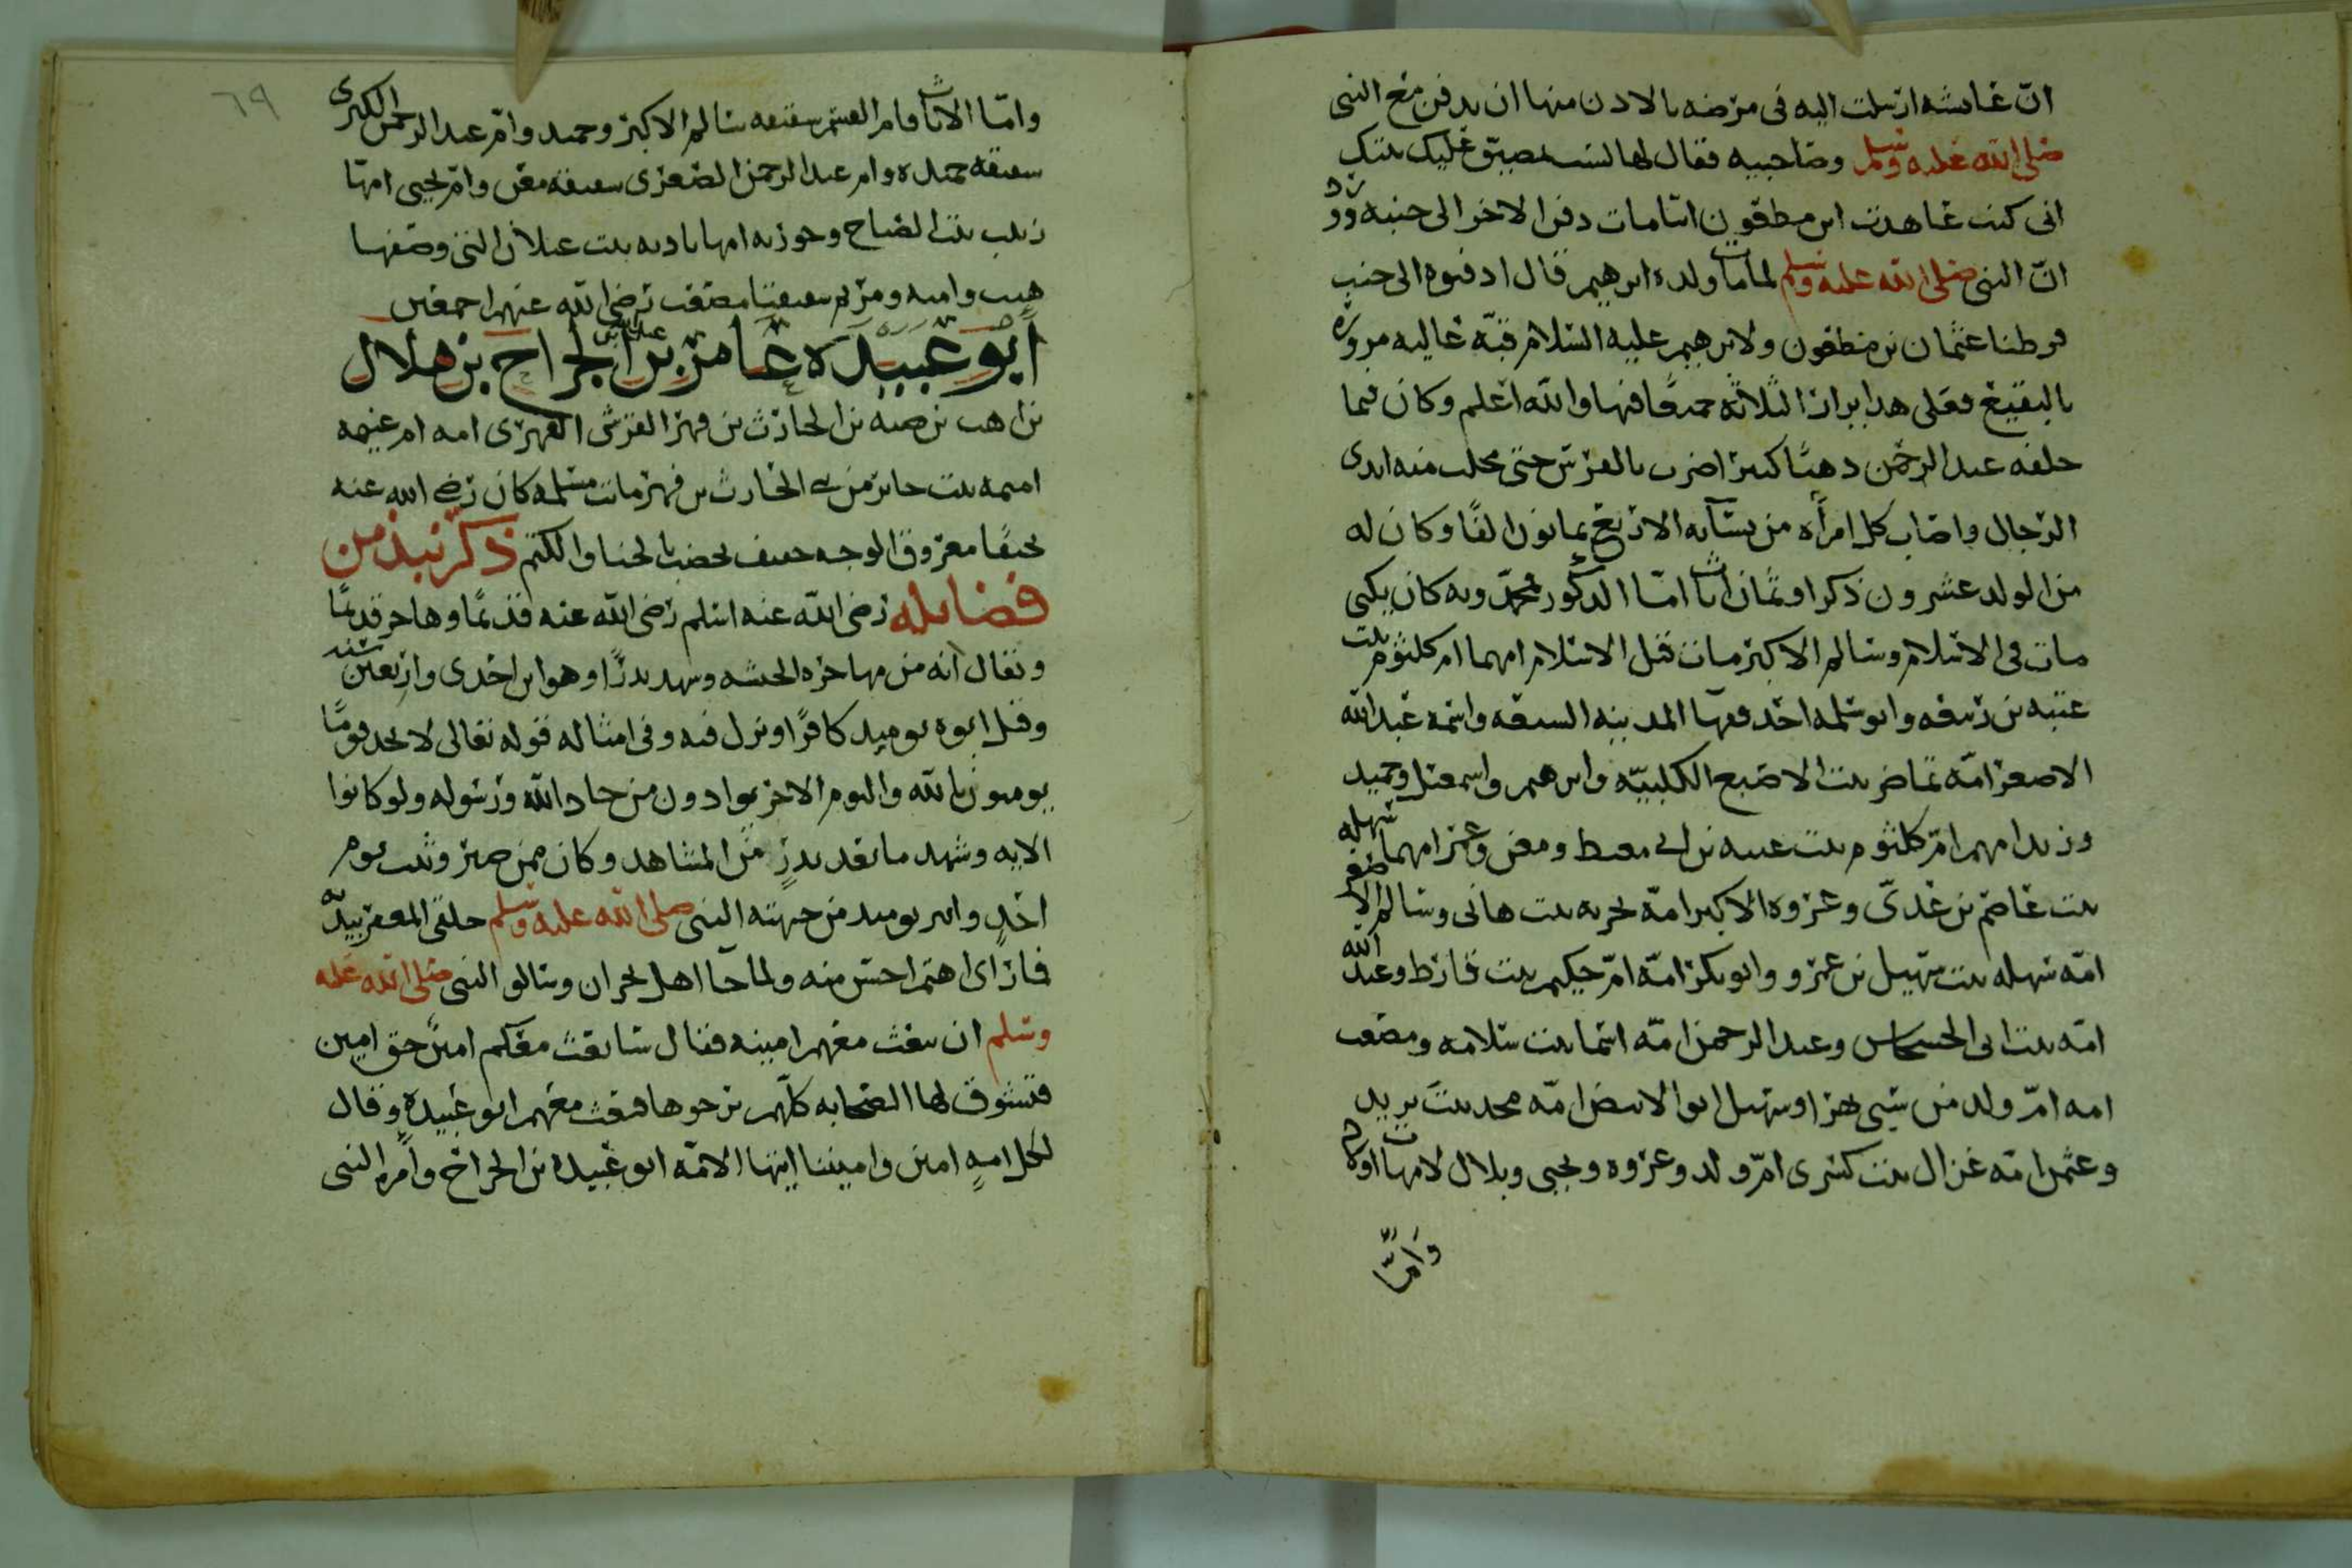 انّ عائشه ارسلت اليه في مرضه بالاذن منها ان يدفن مع النبي
صلى الله عليه وسلم وصاحبيه فقال لها لست مضيق عليك بيتك
اني كنت عاهدت ابن مظعون اينا مات دفن الاخر الى جنبه
انّ النبي صلى الله عليه وسلم لما مات ولده ابرهيم قال ادفنوه الى جنب
فرطنا عثمان بن مظعون ولابرهيم عليه السلام قبّة عاليه مزوره
بالبقيع فعلى هذا يزار الثلاثه جميعًا فيها والله اعلم وكان فيما
خلفه عبد الرحمن ذهبًا كثيرا ضرب بالفؤس حتى مجلت منه ايدى
الرجال واصاب كل امرأه من نسآئه الاربع ثمانون الفًا وكان له
من الولد عشرون ذكرا وثمان اناث امّا الذكور محمّد وبه كان يكنى
مات في الاسلام وسالم الاكبر مات قبل الاسلام امهما ام كلثوم بنت
عتبه بن ربيعه وابو سلمه احد فقهآ المدينه السبعه واسمه عبد الله
الاصغر امّه تماضر بنت الاصبغ الكلبيّه وابرهيم واسمعيل وحميد
وزيد امهم امّ كلثوم بنت عقبه بن ابي معيط ومعن وعمر امهما سهله
بنت عاصم بن عديّ وعروه الاكبر امّه بحريه بنت هانى وسالم الاصغر
امّه سهله بنت سهيل بن عمرو وابو بكر امّه امّ حكيم بنت قارظ وعبد الله
امّه بنت ابي الحسحاس وعبد الرحمن امّه اسما بنت سلامه ومصعب
امه امّ ولد من سبي بهرا وسهيل ابو الابيض امّه مجد بنت يزيد
وعثمن امّه غزال بنت كسرى امّ ولد وعروه ويحيى وبلال لامهات اولاد
وامّا
٦٩
وامّا الاناث فام القسم شقيقه سالم الاكبر وحميد وامّ عبد الرحمن الكبرى
شقيقه حميده وام عبد الرحمن الصغرى شقيقه معن وامّ يحيى امها
زينب بنت الصباح وجويريه امها باديه بنت غيلان التي وصفها
هيت واميه ومريم شقيقتا مصعب رضي الله عنهم اجمعين
ابو عبيدة عامر بن عبد الله بن الجراح بن هلال
بن اهيب بن ضبه بن الحارث بن فهر القرشي الفهري امه ام غنيمه
اميمه بنت جابر من بني الحارث بن فهر ماتت مسلمه كان رضي الله عنه
نحيفًا معروق الوجه خفيف يخضب بالحنا والكتم ذكر نبذ من
فضائله رضى الله عنه اسلم رضى الله عنه قديمًا وهاجر قديمًا
ويقال انه من مهاجره الحبشه وشهد بدرًا وهو ابن احدى واربعين سنه
وقتل ابوه يوميذ كافرًا ونزل فيه وفي امثاله قوله تعالى لا تجد قومًا
يومنون بالله واليوم الاخر يوادون من حاد الله ورسوله ولو كانوا
الايه وشهد ما بعد بدرٍ من المشاهد وكان ممن صبر وثبت يوم
احدٍ وانتزع يوميذ من جبهته النبي صلى الله عليه وسلم حلقتي المغفر بيده
فما راى اهتم احسن منه ولما جآ اهل نجران وسالو النبي صلى الله عليه
وسلم ان يبعث معهم امينه فقال سابعث معكم امينً حق امين
فتشوق لها الصحابه كلّهم يرجوها فبعث معهم ابو عبيده وقال
لكل امهٍ امين واميننا ايتها الامّه ابو عبيده بن الجراح وأمره النبى